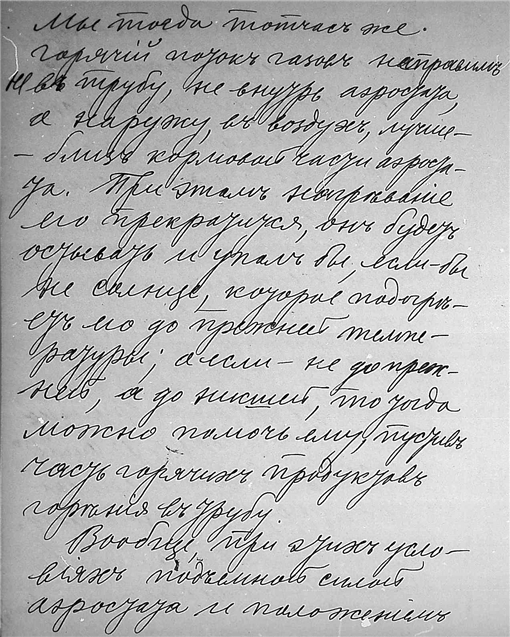 Мы тогда тотчасъ же
горячій потокъ газовъ направимъ
не въ трубу, не внутрь аэростата,
а наружу, въ воздухъ, лучше –
– близъ кормовой части аэроста-
та. При этомъ нагрѣваніе
его прекратится, онъ будетъ
остывать и упалъ бы, если-бы
не солнце, которое подогрѣ-
етъ его до прежней темпе-
ратуры; а если – не до преж-
ней, а до низшей, то тогда
можно помочь ему, пустивъ
часть горячихъ продуктовъ
горѣнія въ трубу.
Вообще, при этихъ усло-
віяхъ подъемной силой
аэростата и положеніемъ